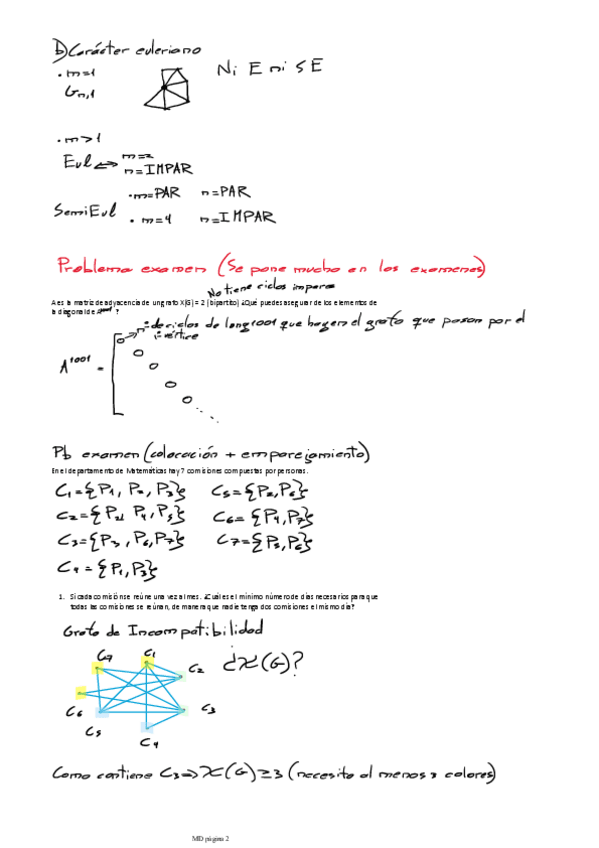 b) Carácter euleriano
• m=1
Gn,1
Ni E ni SE
• m>1
Eul ⇔ m=2
n=IMPAR
• m=PAR n=PAR
SemiEul • m=4 n=IMPAR
Problema examen (Se pone mucho en los examenes)
No tiene ciclos impares
A es la matriz de adyacencia de un grafo X(G) = 2 (bipartito) ¿Qué puedes asegurar de los elementos de
la diagonal de A¹⁰⁰¹ ?
nº de ciclos de long 1001 que hay en el grafo que pasan por el
i-vértice
A¹⁰⁰¹ = [ 0
0
0
0
0
Pb examen (coloración + emparejamiento)
En el departamento de Matemáticas hay 7 comisiones compuestas por personas.
C1={P1, P2, P3} C5={P2,P6}
C2={P2, P4, P5} C6={P4,P7}
C3={P3, P6,P7} C7={P5,P6}
C4={P1,P3}
1. Si cada comisión se reúne una vez al mes. ¿Cuál es el mínimo número de días necesarios para que
todas las comisiones se reúnan, de manera que nadie tenga dos comisiones el mismo día?
Grafo de Incompatibilidad
C7 C1 C2 ¿X(G)?
C6 C3
C5
C4
Como contiene C3⇒X(G)≥3 (necesito al menos 3 colores)
MD página 2